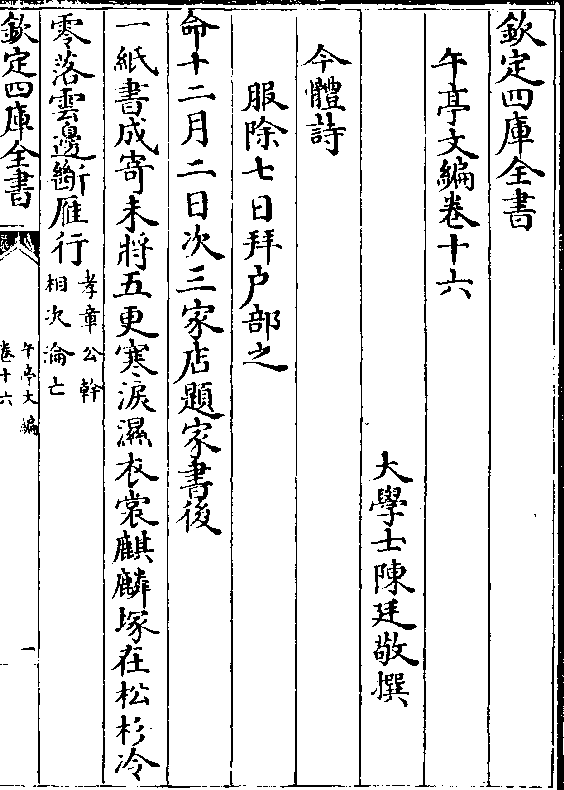 欽定四庫全書
午亭文編卷十六
大學士陳廷敬撰
今體詩
服除七日拜户部之
命十二月二日次三家店題家書後
一紙書成寄未將五更寒淚濕衣裳麒麟塚在松杉冷
零落雲邊斷雁行孝章公幹
相次淪亡
欽定四庫全書
午亭文編
卷十六
一